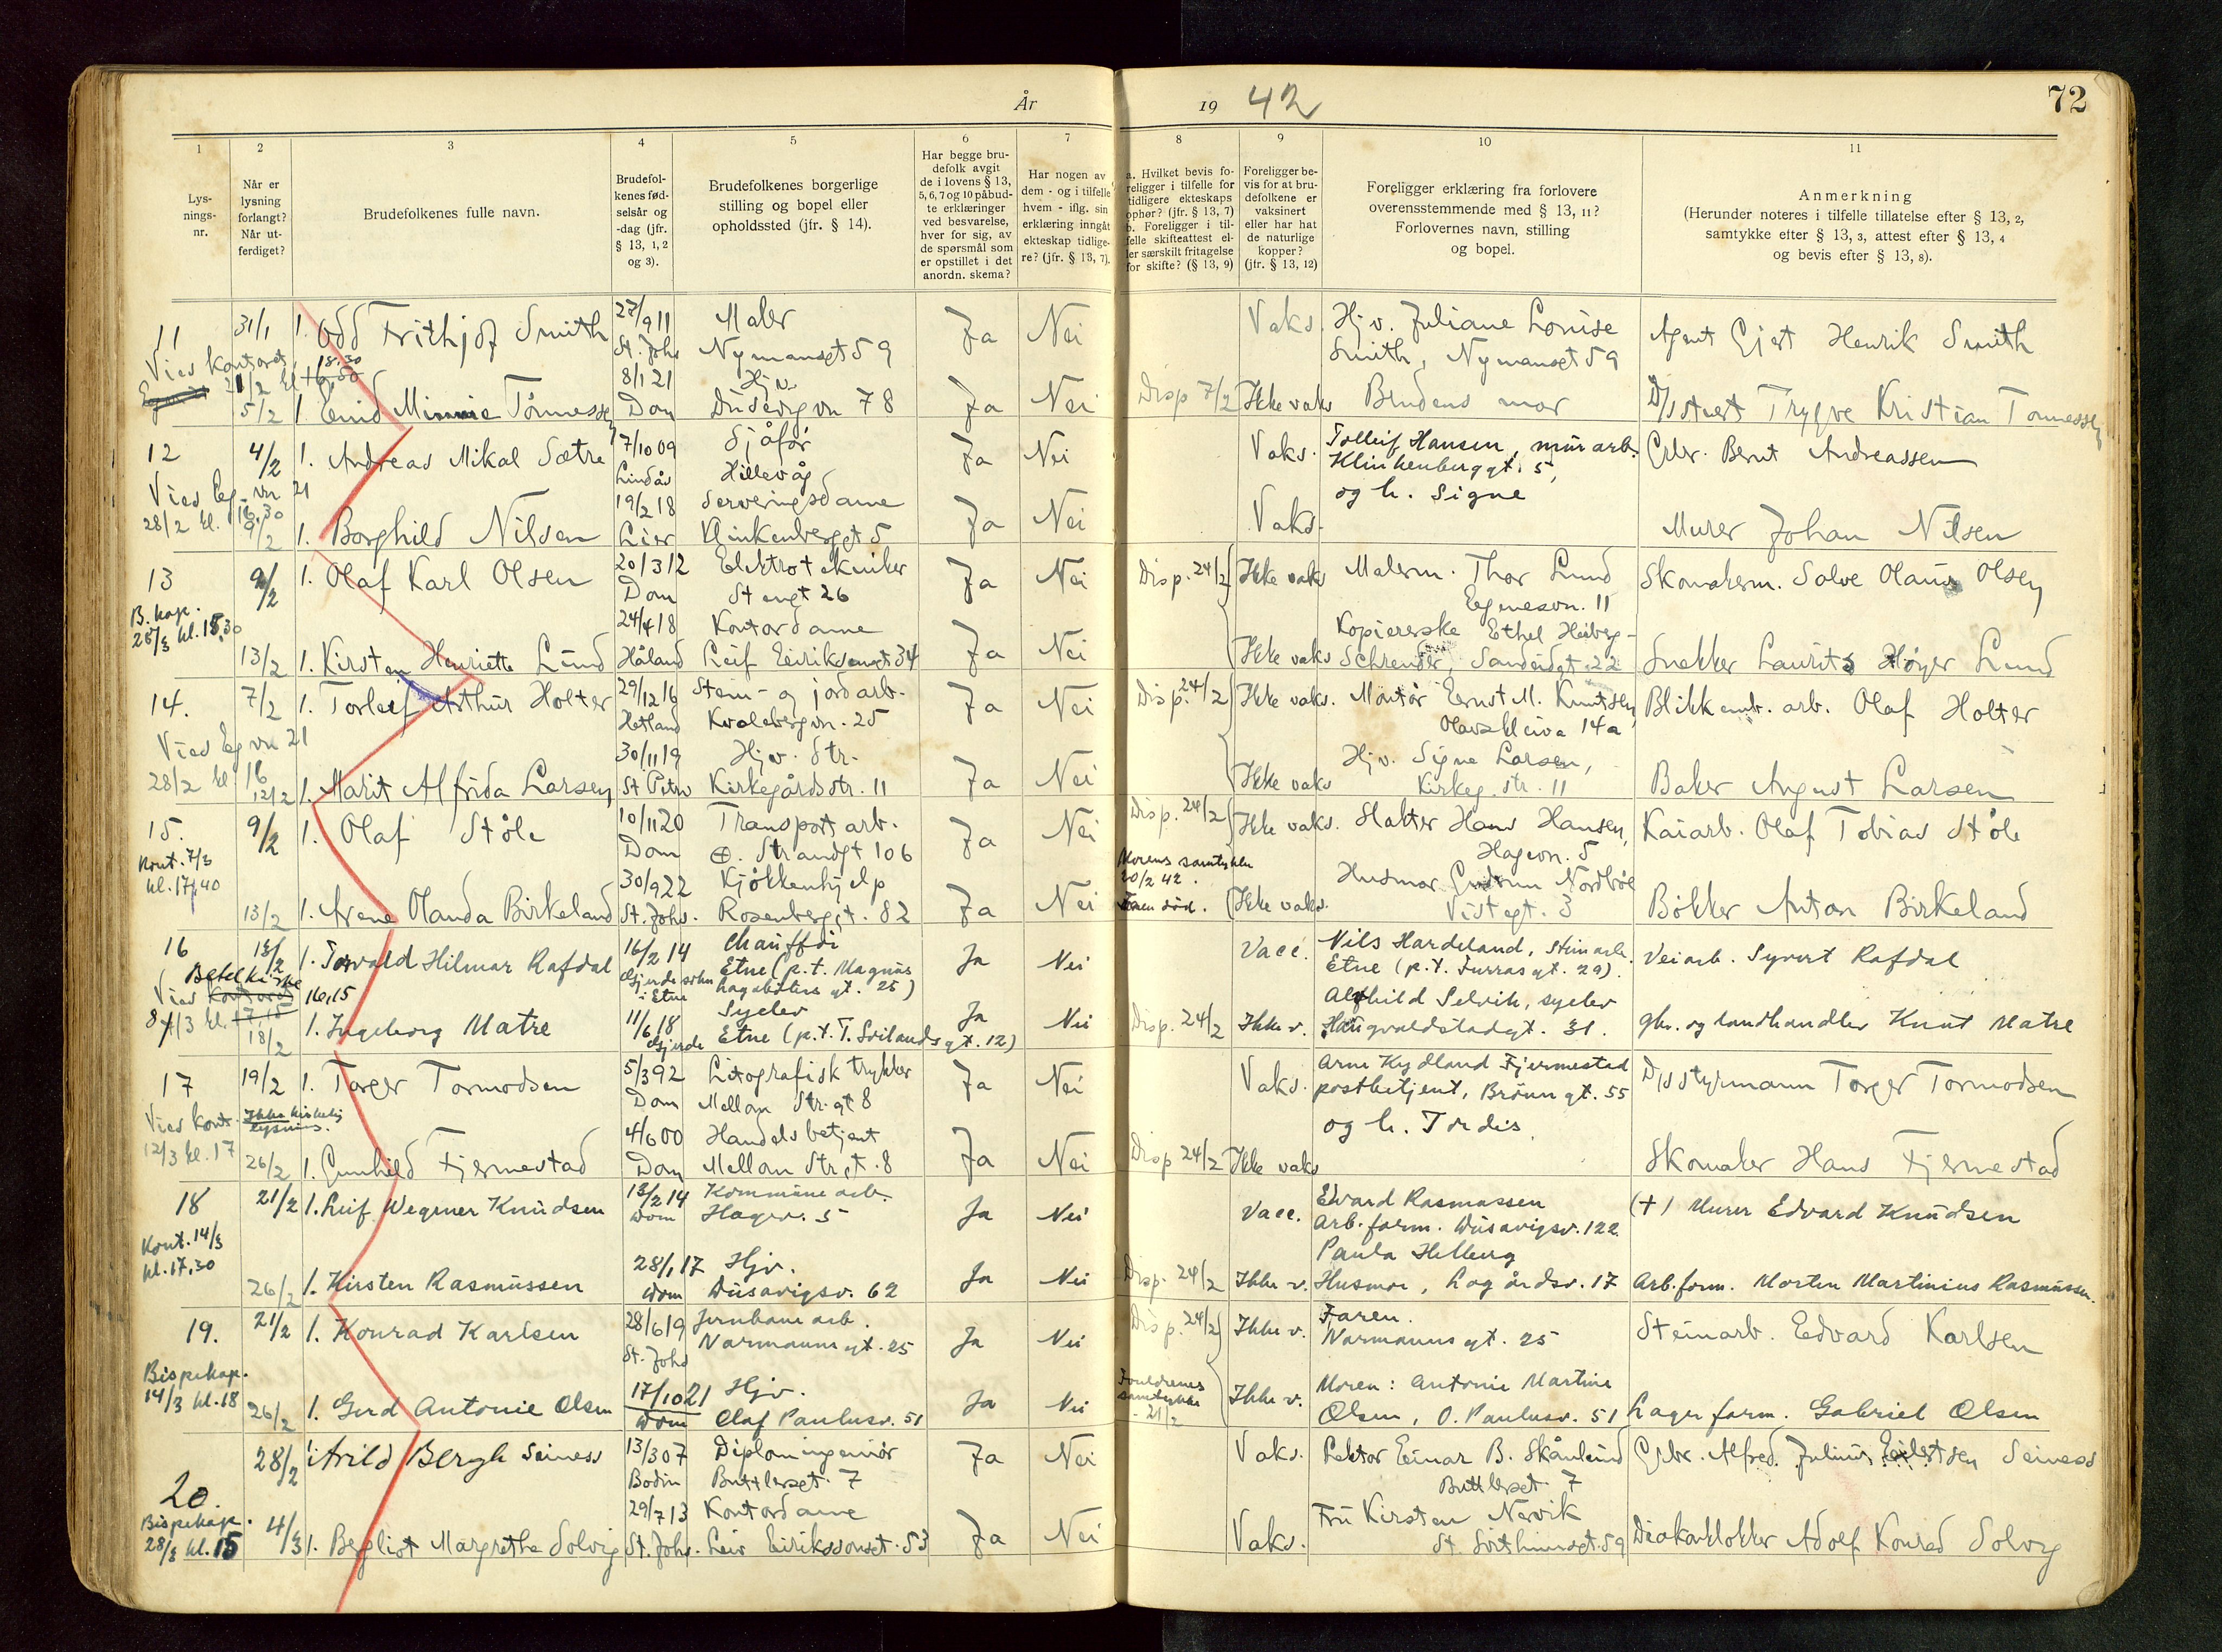 År 19 42
72
1 2 3 4 5 6 7 8 9 10 11
Lys-
nings-
nr.
Når er
lysning
forlangt?
Når ut-
ferdiget?
Brudefolkenes fulle navn.
Brudefol-
kenes fød-
selsår og
-dag (jfr.
§ 13, 1, 2
og 3).
Brudefolkenes borgerlige
stilling og bopel eller
opholdssted (jfr. § 14).
Har begge bru-
defolk avgit
de i lovens § 13,
5, 6, 7 og 10 påbud-
te erklæringer
ved besvarelse,
hver for sig, av
de spørsmål som
er opstillet i det
anordn. skema?
Har nogen av
dem - og i tilfelle
hvem - iflg. sin
erklæring inngåt
ekteskap tidlige-
re? (jfr. § 13, 7).
a. Hvilket bevis fo-
religger i tilfelle for
tidligere ekteskaps
ophør? (jfr. § 13, 7)
b. Foreligger i til-
felle skifteattest el-
ler særskilt fritagelse
for skifte? (§ 13, 9)
Foreligger be-
vis for at bru-
defolkene er
vaksinert
eller har hat
de naturlige
kopper?
(jfr. § 13, 12)
Foreligger erklæring fra forlovere
overensstemmende med § 13, 11?
Forlovernes navn, stilling
og bopel.
Anmerkning
(Herunder noteres i tilfelle tillatelse efter § 13, 2,
samtykke efter § 13, 3, attest efter § 13, 4
og bevis efter § 13, 8).
11 31/1 1. Odd Frithjof Smith 27/9 11 St. Johs Maler Nymansgt 59 Ja Nei Vaks. Hjv. Juliane Louise Smith, Nymansgt 59 Agent Gjert Henrik Smith
Vies kontoret, 21/2 kl. 18.30
5/2 1. Enid Minnie Tønnessen 8/1 21 Dom Hjv. Dusevig vn 78 Ja Nei Disp 7/2 Ikke vaks Brudens mor D/S stuert Trygve Kristian Tønnessen
12 4/2 1. Andreas Mikal Sætre 7/10 09 Lindås Sjåfør Hillevåg Ja Nei Vaks. Tolleif Hansen, murarb. Klinkenberggt. 5, og h. Signe Gbr. Bernt Andreassen
Vies Eg. vn 21
28/2 kl. 16.30
9/2 1. Borghild Nilsen 19/2 18 Lier Serveringsdame Klinkenberggt 5 Ja Nei Vaks. Murer Johan Nilsen
13 9/2 1. Olaf Karl Olsen 20/3 12 Dom Elektrotekniker Stengt 26 Ja Nei Disp. 24/2 Ikke vaks Malerm. Thor Lund Egenesvn. 11 Skomakerm. Salve Olaus Olsen
B. kap.
28/3 kl. 15,30
13/2 1. Kirsten Henriette Lund 24/4 18 Håland Kontordame Leif Eiriksensgt 34 Ja Nei Ikke vaks Kopiererske Ethel Heiberg-Schreuder, Sandeidgt. 22 Snekker Laurits Høyer Lund
14. 7/2 1. Torleif Arthur Holter 29/12 16 Hetland Stein- og jordarb. Kvalebergvn. 25 Ja Nei Disp. 24/2 Ikke vaks. Montør Ernst M. Knutsen, Olavskleiva 14a Blikkemb. arb. Olaf Holter
Vies Eg vn 21
28/2 kl 16
12/2 1. Marit Alfrida Larsen 30/11 19 St Petri Hjv. Str. Kirkegårdsstr. 11 Ja Nei Ikke vaks Hjv. Signe Larsen, Kirkeg. str. 11 Baker August Larsen
15. 9/2 1. Olaf Støle 10/11 20 Dom Transportarb. Ø. Strandgt 106 Ja Nei Disp. 24/2 Ikke vaks. Slakter Hans Hansen, Hagevn. 5 Kaiarb. Olaf Tobias Støle
Kont. 7/3
kl. 17,40
13/2 1. Arene Olanda Birkeland 30/9 22 St. Johs. Kjøkkenhjelp Rosenberggt. 82 Ja Nei Morens samtykke 20/2 42. Faren død. Ikke vaks. Husmor Gudrun Nordbøe Vistegt. 3 Bøkker Anton Birkeland
16 13/2 1. Torvald Hilmar Rafdal 16/2 14 Gjerde sokn i Etne Chauffør Etne (p.t. Magnus Lagabøters gt. 25) Ja Nei Vacc. Nils Hardeland, Steinarb. Etne (p.t. Furrasgt. 29). Veiarb. Syvert Rafdal
Betelkirke
Vies kontoret 16,15
8/3 kl. 17,15
18/2 1. Ingeborg Matre 11/6 18 Gjerde Syelev Etne (p.t. T. Svilandsgt. 12) Ja Nei Disp. 24/2 Ikke v. Alfhild Selvik, syelev Haugvaldstadgt. 31. gbr. og landhandler Knut Matre
17 19/2 1. Torger Tormodsen 5/3 92 Dom Litografisk trykker Mellom Str. gt 8 Ja Nei Vaks. Arne Kydland Fjermestad postbetjent, Brønngt. 55 og h. Tordis D/S styrmann Torger Tormodsen
Ikke kirkelig lysning.
Vies kont. 12/3 kl. 17
26/2 1. Gunhild Fjermestad 4/6 00 Dom Handelsbetjent Mellom Strgt. 8 Ja Nei Disp 24/2 Ikke vaks Skomaker Hans Fjermestad
18 21/2 1. Leif Wegner Knudsen 13/2 14 Dom Kommunearb. Hagev. 5 Ja Nei Vacc. Edvard Rasmussen Arb. form. Dusavigsv. 122 (+) Murer Edvard Knudsen
Kont. 14/3
kl. 17,30
26/2 1. Kirsten Rasmussen 28/1 17 Dom Hjv. Dusavigsv. 62 Ja Nei Disp. 24/2 Ikke v. Paula Helleng Husmor, Lagårdsv. 17 Arb. form. Morten Martinius Rasmussen.
19. 21/2 1. Konrad Karlsen 28/6 19 St. Johs Jernbanearb. Normannsgt. 25 Ja Nei Disp. 24/2 Ikke v. Faren. Normannsgt. 25 Steinarb. Edvard Karlsen
Bispekap.
14/3 kl. 18
26/2 1. Gerd Antonie Olsen 17/10 21 Dom Hjv. Olaf Paulusv. 51 Ja Nei Foreldrenes samtykke - 21/2 Ikke v. Moren: Antonie Martine Olsen, O. Paulusv. 51 Lagerform. Gabriel Olsen
20. 28/2 1. Arild Bergh Seiness 13/3 07 Bodin Diplomingeniør Buttlersgt. 7 Ja Nei Vaks. Lektor Einar B. Skånlund Buttlersgt. 7 Gbr. Alfred Julius Eilertsen Seiness
Bispekap.
28/3 kl. 15
4/3 1. Bergliot Margrethe Solvig 29/7 13 St. Johs. Kontordame Leiv Eirikssonsgt. 53 Ja Nei Vaks. Fru Kirsten Nervik St. Svithunsgt. 59 Diakon klokker Adolf Konrad Solvig